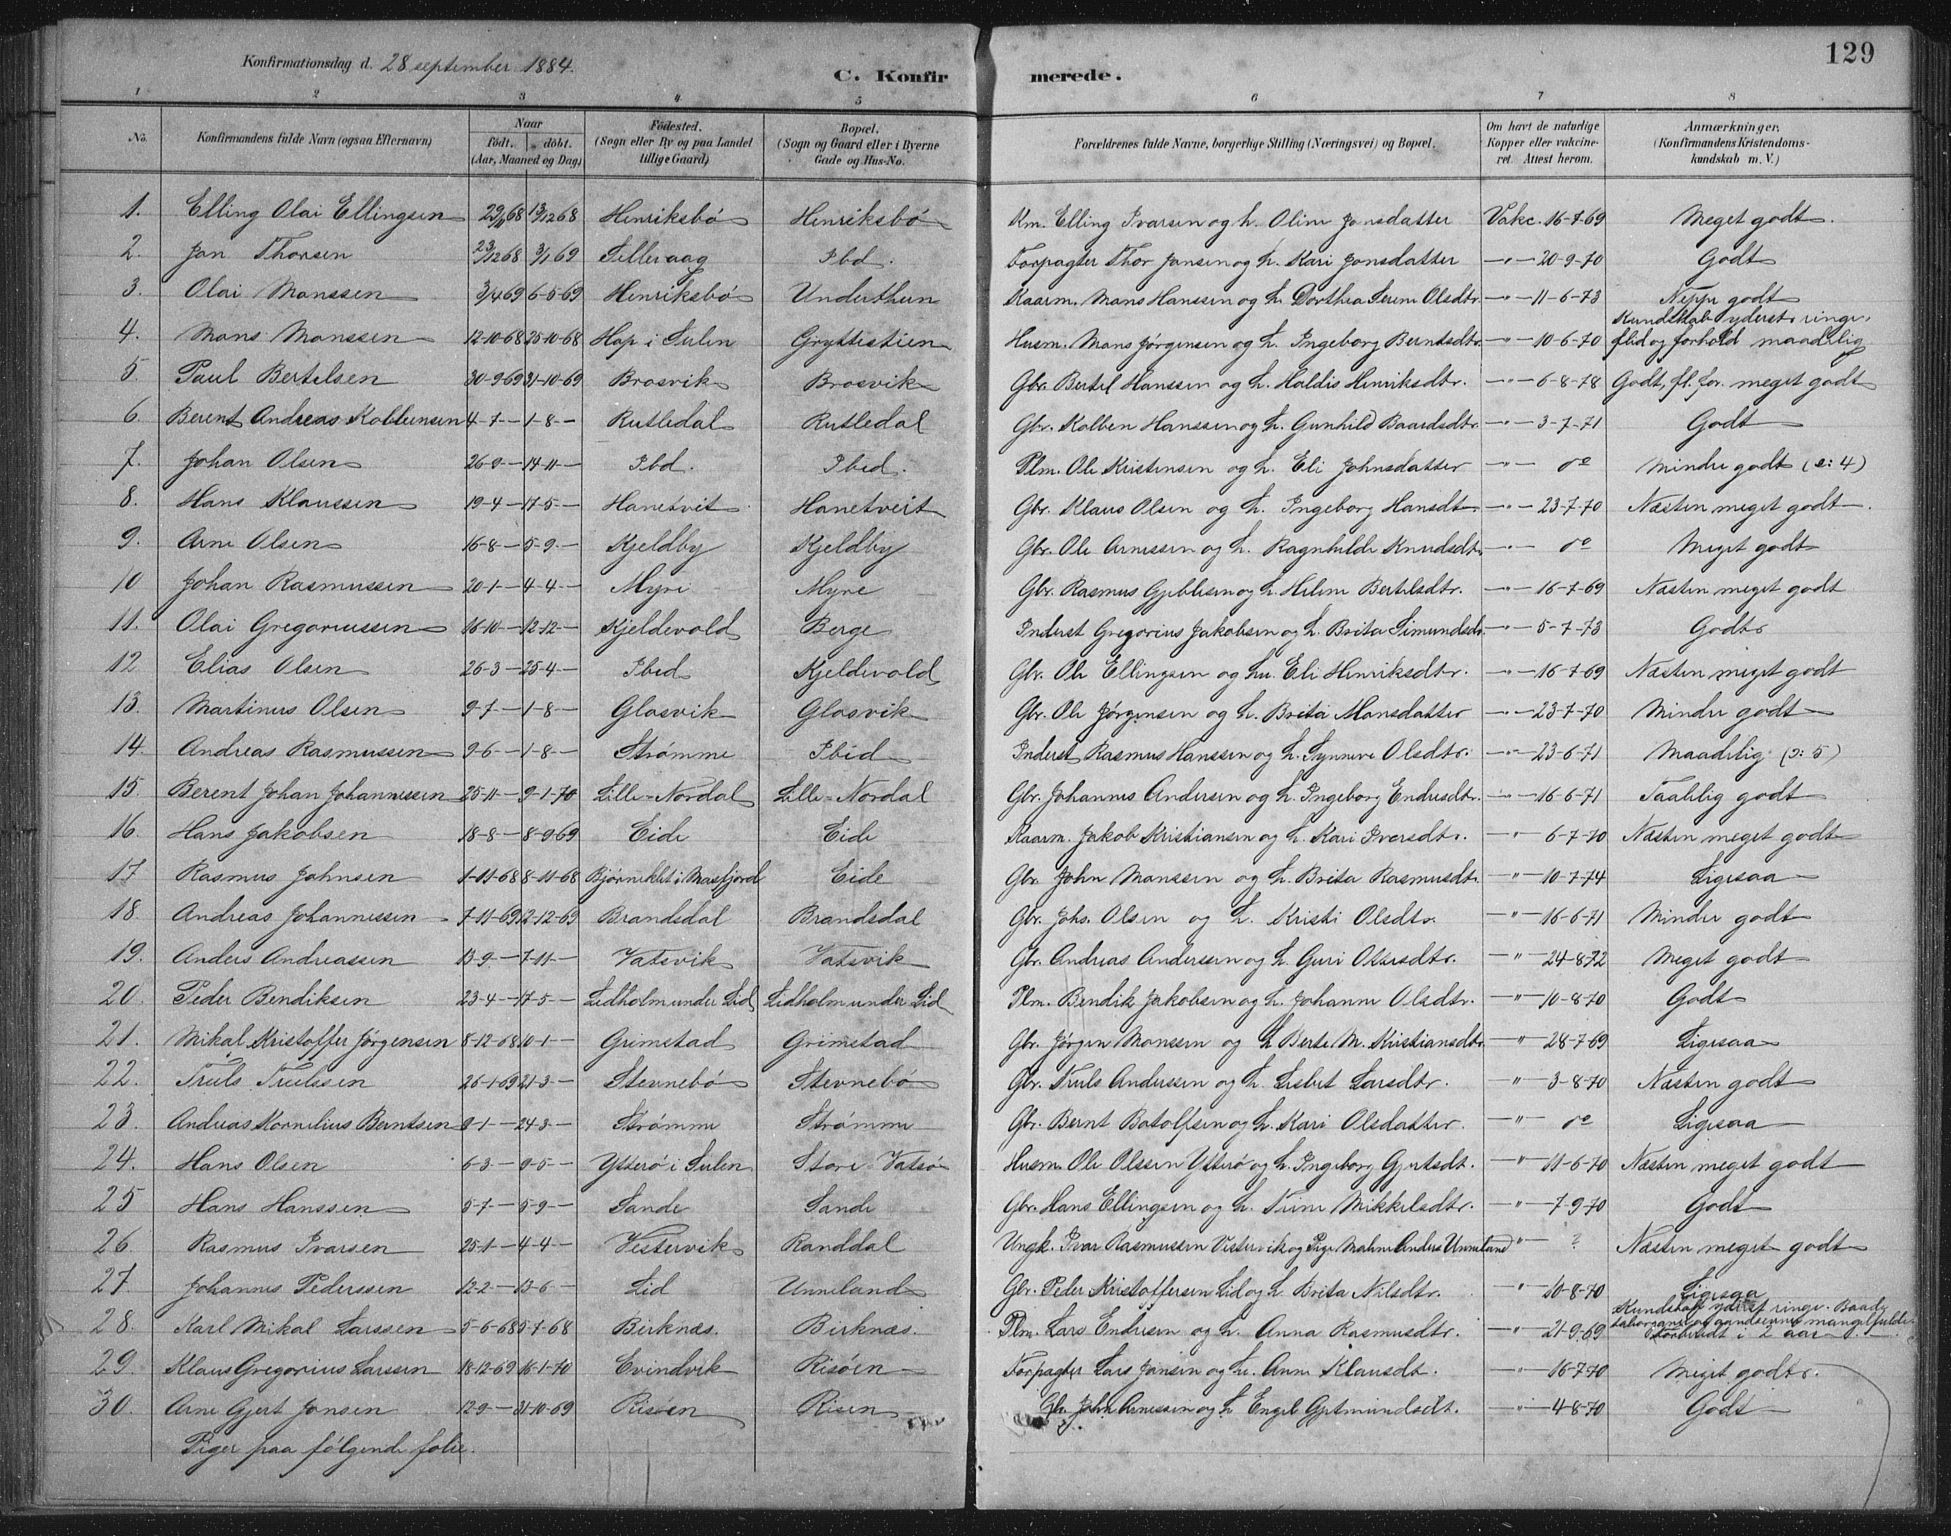 Konfirmationsdag d. 28 september 1884.
C. Konfirmerede.
129
1 2 3 4 5 6 7 8
No. Konfirmandens fulde Navn (ogsaa Efternavn) Naar født. døbt. (Aar, Maaned og Dag) Fødested. (Sogn eller By og paa Landet tillige Gaard) Bopæl. (Sogn og Gaard eller i Byerne Gade og Hus-No. Forældrenes fulde Navne, borgerlige Stilling (Næringsvei) og Bopæl. Om havt de naturlige Kopper eller vakcineret. Attest herom. Anmærkninger. (Konfirmandens Kristendomskundskab m. V.)
1. Elling Olai Ellingsen 29/11 68 13/12 68 Henriksbø Henriksbø Km. Elling Ivarsen og h. Oline Jonsdatter Vakc. 16-7-69 Meget godt.
2. Jan Thorsen 23/12 68 3/1 69 Sillevaag Ibd. Forpagter Thor Jansen og h. Kari Jonsdatter -"- 20-9-70 Godt
3. Olai Monssen 3/4 69 6-5-69 Henriksbø Underthun Kaarm. Mons Hanssen og h. Dorthea Serine Olsdtr. -"- 11-6-73 Neppe godt
4. Mons Monssen 12-10-68 25-10-68 Hop i Sulen Gryttestien Husm. Mons Jørgensen og h. Ingeborg Berntsdtr. -"- 10-6-70 Kundskab yderst ringe, flid og forhold maadelig
5. Paul Bertelsen 30-9-69 31-10-69 Brosvik Brosvik Gbr. Bertel Hanssen og h. Haldis Henriksdtr. -"- 6-8-78 Godt, fl. for. meget godt
6. Berent Andreas Kolbeinsen 4-7- 1-8- Rutledal Rutledal Gbr. Kolben Hanssen og h. Gunhild Baardsdtr. -"- 3-7-71 Godt
7. Johan Olsen 26-9- 14-11- Ibd. Ibid. Plm. Ole Kristensen og h. Eli Johnsdatter -"- do Mindre godt (ɔ: 4)
8. Hans Klaussen 19-4- 17-5- Hanetvit Hanetveit Gbr. Klaus Olsen og h. Ingeborg Hansdtr -"- 23-7-70 Næsten meget godt.
9. Arne Olsen 16-8- 5-9- Kjeldby Kjeldby Gbr. Ole Arnessen og h. Ragnhilde Knudsdtr. -"- do Meget godt
10 Johan Rasmussen 20-1- 4-4- Myre Myre Gbr. Rasmus Gjeblesen og h. Helene Bertelsdtr. -"- 16-7-69 Næsten meget godt
11. Olai Gregoriussen 16-10- 12-12- Kjeldevold Berge Inderst Gregorius Jakobsen og h. Brita Simundsdr. -"- 5-7-73 Godt
12 Elias Olsen 26-3- 25-4- Ibid Kjeldevold Gbr. Ole Ellingsen og hu. Eli Henriksdtr. -"- 16-7-69 Næsten meget godt
13. Martinus Olsen 9-7- 1-8- Glosvik Glosvik Gbr. Ole Jørgensen og h. Brita Monsdatter -"- 23-7-70 Mindre godt
14. Andreas Rasmussen 9-6- 1-8- Strømme Ibid Inderst Rasmus Hanssen og h. Synneve Olsdtr. -"- 23-6-71 Maadelig (ɔ: 5)
15. Berent Johan Johannessen 25-11- 9-1-70 Lille-Nordal Lille-Nordal Gbr. Johannes Andersen og h. Ingeborg Endresdtr. -"- 16-6-71 Taalelig godt
16. Hans Jakobsen 18-8- 8-9-69 Eide Eide Kaarm. Jakob Kristiansen og h. Kari Iversdtr. " 6-7-70 Næsten meget godt
17 Rasmus Johnsen 1-11-68 8-11-68 i Masfjord Eide Gbr. John Monssen og h. Brita Rasmusdtr " 10-7-74 Ligesaa
18. Andreas Johannessen 7-11-69 12-12-69 Brandsdal Brandsdal Gbr. Johs. Olsen og h. Kristi Olsdtr. " 16-6-71 Mindre godt
19. Anders Andreassen 13-9- 7-11- Vatsvik Vatsvik Gbr. Andreas Anderssen og h. Guri Ottesdtr. " 24-8-72 Meget godt
20. Peder Bendiksen 23-4- 17-5- Lidholm under Lid Lidholm under Lid Plm. Bendik Jakobsen og h. Johanne Olsdtr. " 10-8-70 Godt
21. Mikal Kristoffer Jørgensen 8-12-68 10-1- Grimstad Grimstad Gbr. Jørgen Monssen og h Berte M. Kristiansdtr. " 28-7-69 Ligesaa
22. Truls Trulssen 26-1-69 21-3- Stevnebø Stevnebø Gbr. Truls Anderssen og h. Lisbet Larsdtr. " 3-8-70 Næsten godt
23. Andreas Kornelius Berntsen 9-1- 24-3- Strømme Strømme Gbr. Bernt Botolfsen og h. Kari Olsdatter. " do Ligesaa
24. Hans Olsen 6-3- 9-5- Ytterø i Sulen Store Vatsø Husm. Ole Olssen Ytterø og h. Ingeborg Gjertsdt. " 11-6-70 Næsten meget godt
25 Hans Hanssen 5-7- 5-9- Sande Sande Gbr. Hans Ellingsen og h. Trine Mikkelsdtr. " 7-9-70 Godt
26 Rasmus Ivarsen 25-1- 4-4- Vestervik Randdal Ungk. Ivar Rasmussen Vestervik og Pige Malene Anders Unneland " ? Næsten meget godt
27. Johannes Pederssen 12-2- 13-6- Lid Unneland Gbr. Peder Kristoffersen Lid og h. Brita Nilsdtr. " 10-8-70 Ligesaa
28. Karl Mikal Larssen 5-6-68 5-7-68 Birknæs. Birknæs. Plm. Lars Endresen og h. Anna Rasmusdtr. " 21-9-69 Kundskab yderst ringe. Baade taleorgans og aandsevner mangelfulde. Forberedt i 2 aar
29. Klaus Gregorius Larssen 18-12-69 16-1-70 Evindvik Risøen Forpagter Lars Jansen og h. Anne Klausdt. " 16-7-70 Meget godt.
30. Arne Gjert Jonsen 12-9- 31-10-69 Risøen Risøen Gbr. John Arnessen og h Engel Gjetmundsdt. " 4-8-70 Godt
Piger paa følgende folie.